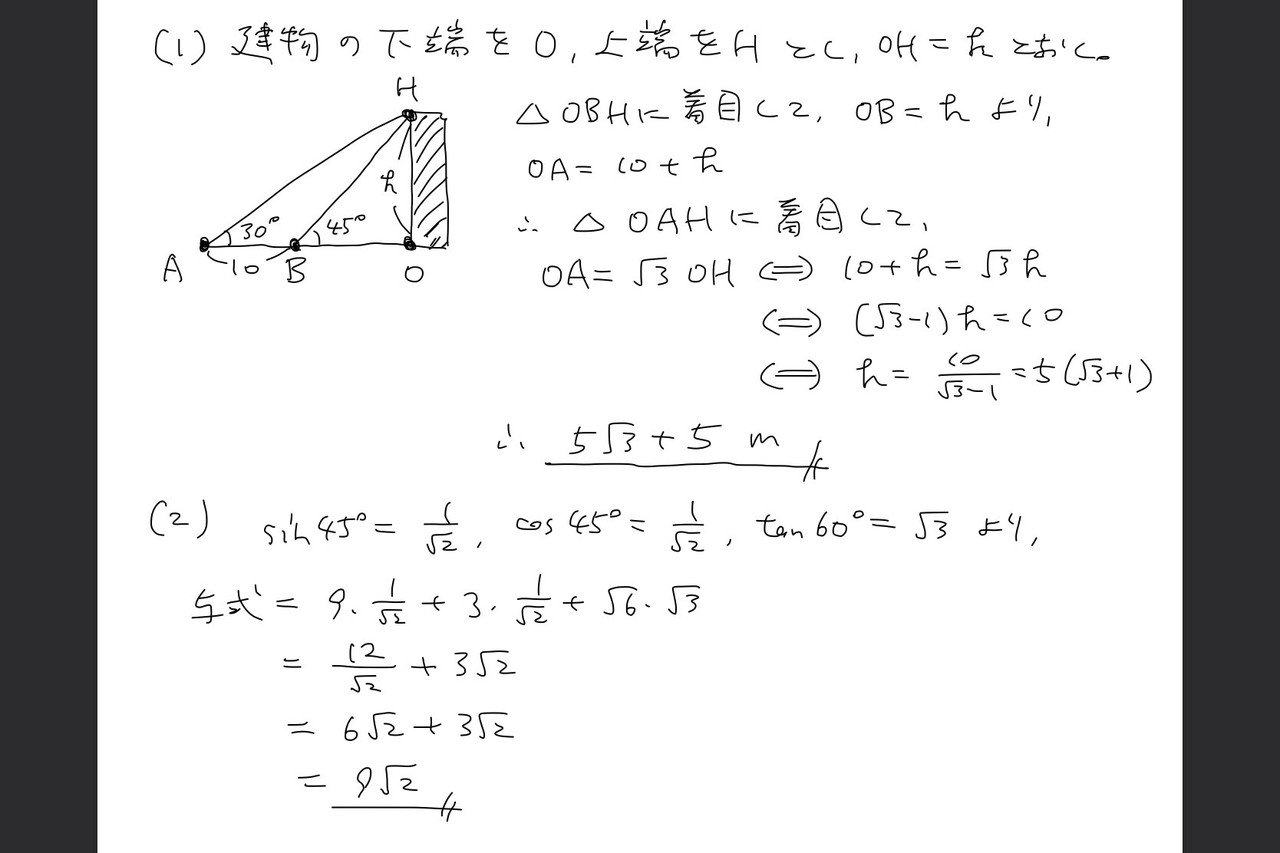 (1) 建物の下端をO, 上端をHとし, OH = h とおく。
H
△OBHに着目して, OB = h より,
OA = 10 + h
h
30° 45°
∴ △OAHに着目して,
A 10 B O
OA = √3 OH ⟺ 10 + h = √3 h
⟺ (√3-1) h = 10
⟺ h = 10/(√3-1) = 5(√3+1)
∴ 5√3 + 5 m
(2) sin45° = 1/√2, cos45° = 1/√2, tan60° = √3 より,
与式 = 9・1/√2 + 3・1/√2 + √6・√3
= 12/√2 + 3√2
= 6√2 + 3√2
= 9√2